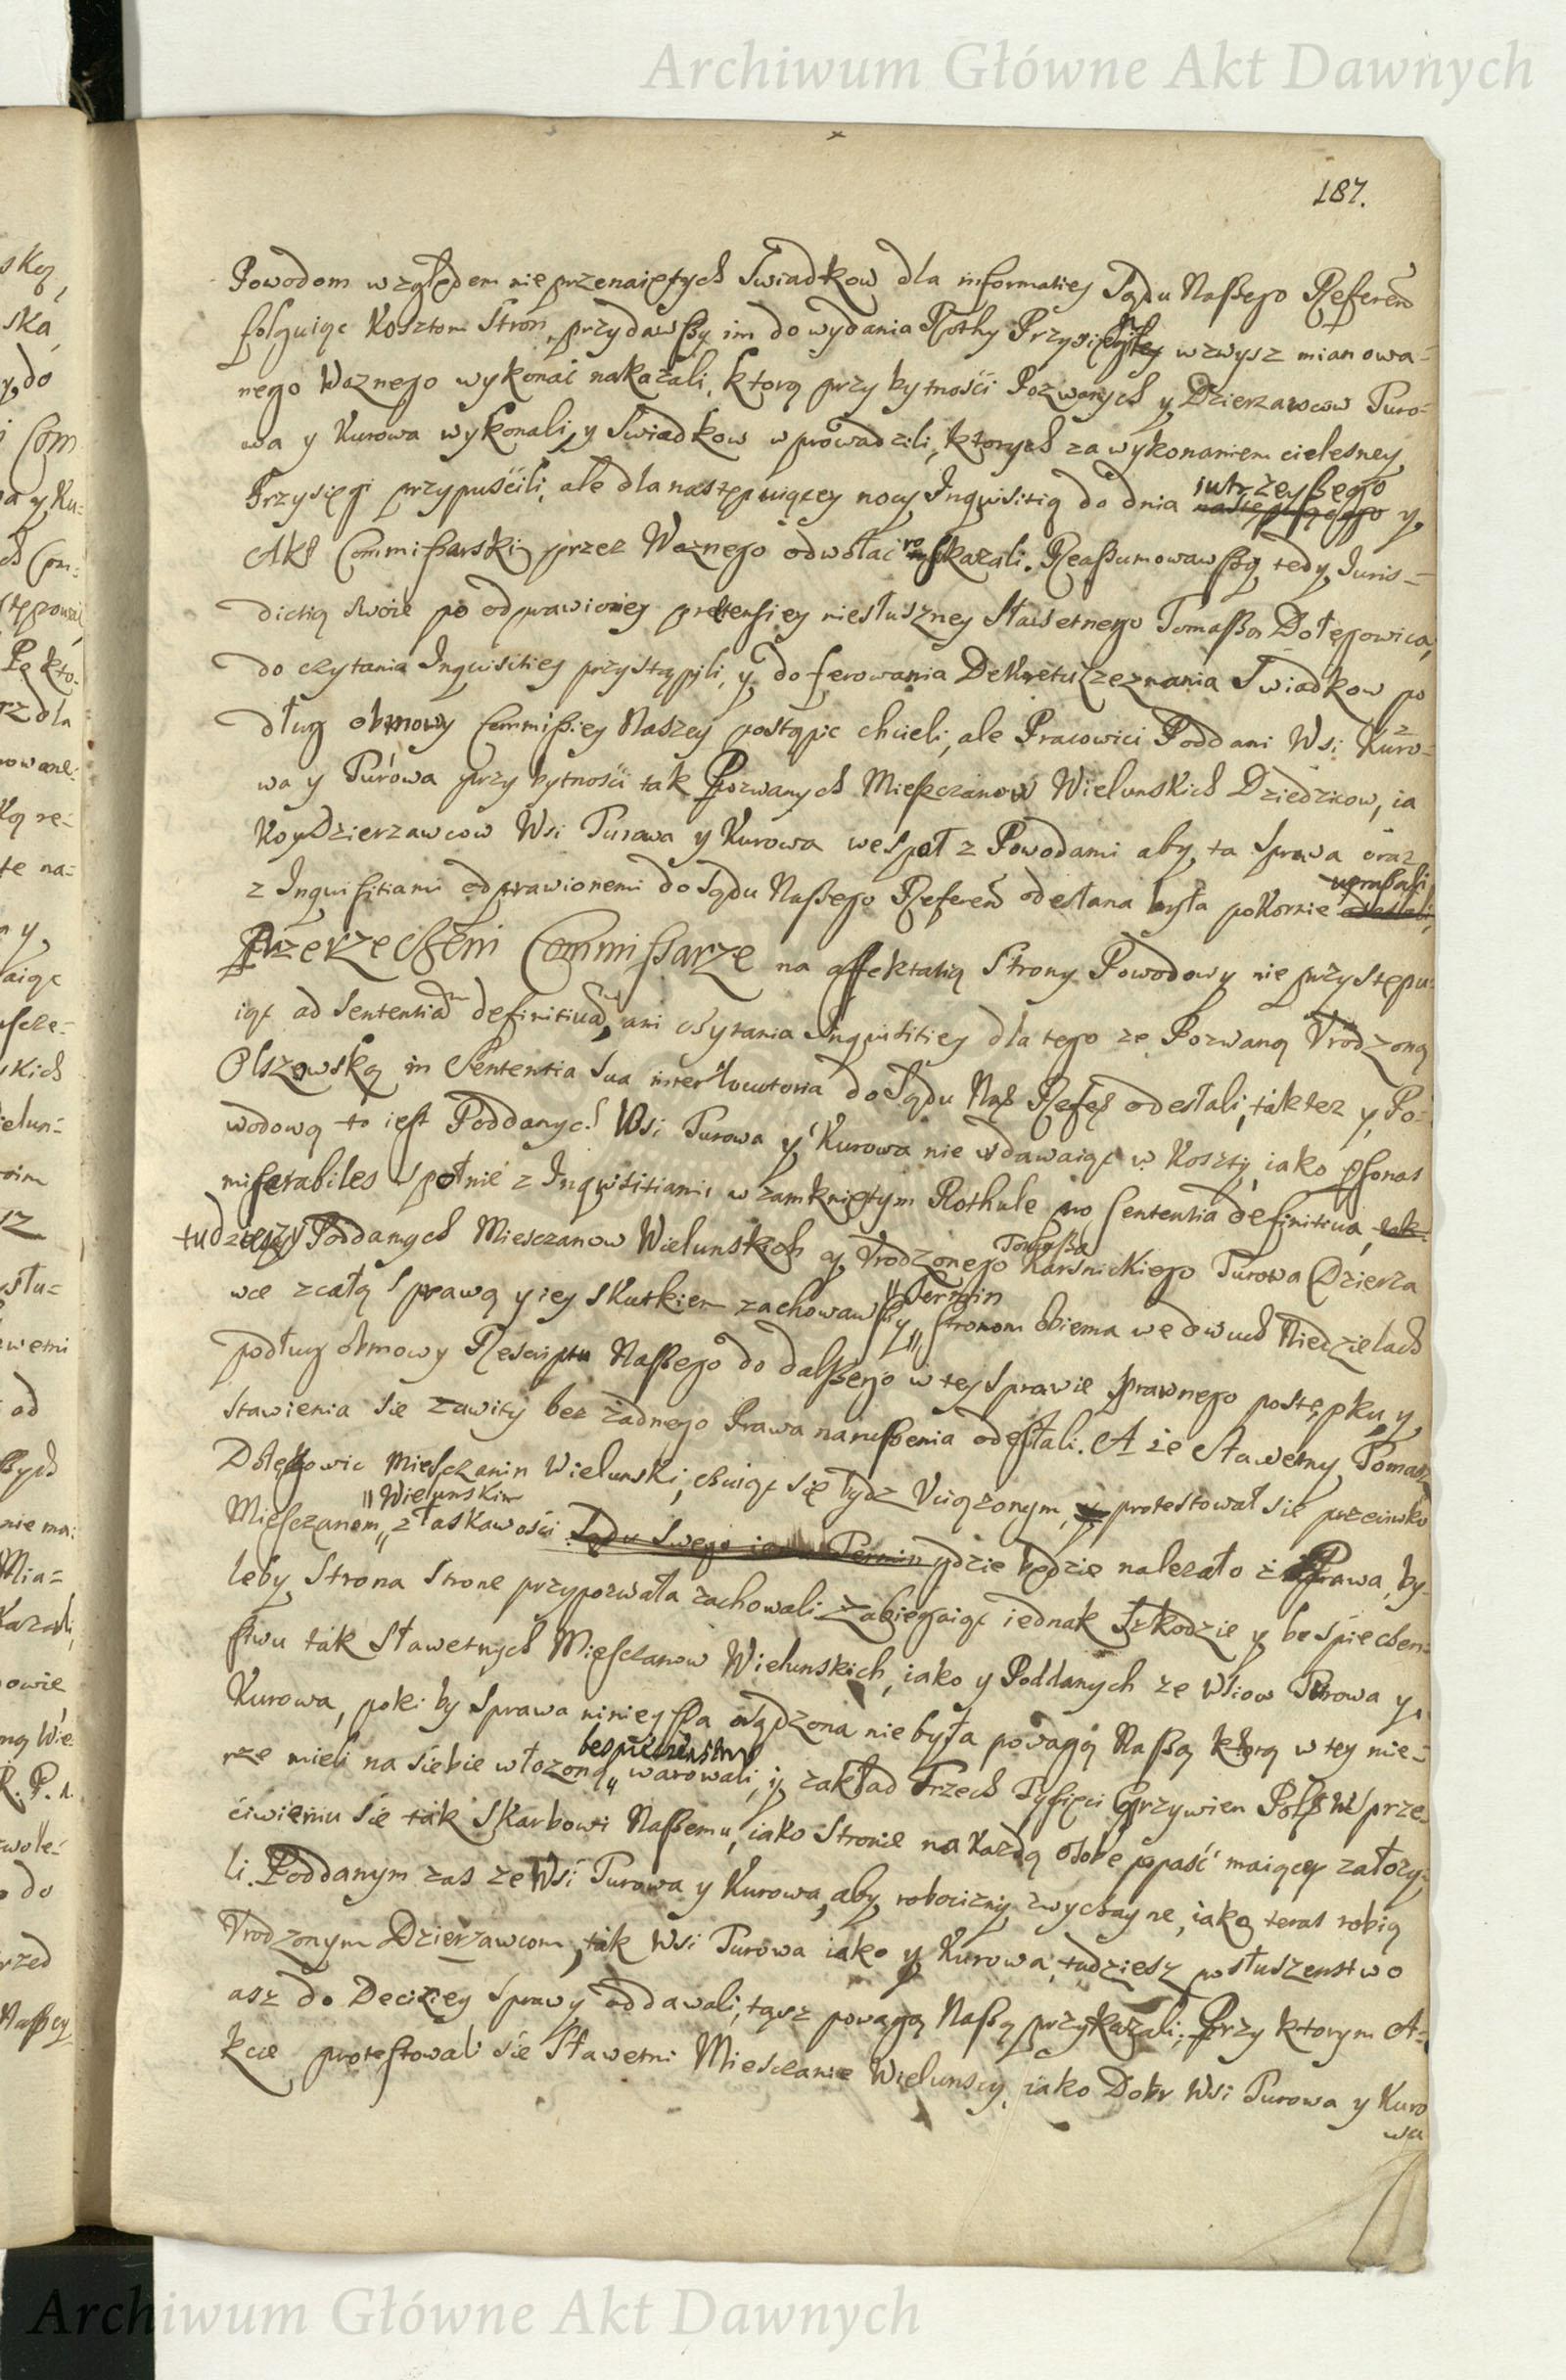 Archiwum Główne Akt Dawnych
187.
Powodom względem nieprzenaiętych Swiadkow dla informatiey Sądu Naszego Referen
folguiąc Kosztom Stron, przydawszy im do wydania Rothy Przysięgi wzwysz mianowa-
nego Woznego wykonać nakazali, ktorą przy bytności Pozwanych y Dzierzawcow Turo-
wa y Kurowa wykonali, y Swiadkow wprowadzili, ktorych za wykonaniem cielesney
Przysięgi przypuścili, ale dla następuiącey nocy Inquisitią do dnia iutrzeyszego y
Akt Commissarski przez Woznego odwołać roskazali. Reassumowawszy tedy Juris-
dictią swoie po odprawioney pretensiey niesłuszney Sławetnego Tomasza Dołęgowica,
do czytania Inquisitiey przystąpili, y do ferowania Dekretu z zeznania Swiadkow po
dług obmowy Commissiey Naszey postąpic chcieli, ale Pracowici Poddani Wsi Kuro-
wa y Turowa przy bytności tak Pozwanych Mieszczanow Wielunskich Dziedzicow, ia
ko y Dzierzawcow Wsi Turowa y Kurowa wespoł z Powodami aby ta Sprawa oraz
z Inquisitiami odprawionemi do Sądu Naszego Referen odesłana była pokornie upraszali,
Przerzeczeni Commissarze na affektatią Strony Powodowy nie przystępu-
iąc ad Sententiam definitiuam, ani czytania Inquisitiey dla tego ze Pozwaną Vrodzoną
Olszowską in Sententia sua interlocutoria do Sądu Nasz Referen odesłali, tak tez y Po-
wodową to iest Poddanych Wsi Turowa y Kurowa nie wdawaiąc w Koszty, iako psonas
miserabiles społnie z Inquisitiami w zamkniętym Rothule pro Sententia definitiua,
tudziesz y Poddanych Miesczanow Wielunskich y Vrodzonego Tomasza Karsnickiego Turowa Dzierza
wce z całą Sprawą y iey skutkiem zachowawszy Termin Stronom obiema we dwuch Niedzielach
podług obmowy Rescriptu Naszego do dalszego w tey sprawie prawnego postępku, y
stawienia się zawity bez żadnego Prawa naruszenia odesłali. A że Sławetny Tomasz
Dołęgowic Miesczanin Wielunski, chcąc się bydz Vciązonym, protestował się przeciwko
Miesczanom Wielunskim, z łaskawości Sądu Swego Termin gdzie będzie należało z Prawa, by-
leby Strona Strone przypozwała zachowali. Zabiegaiąc iednak Szkodzie y bespieczen-
stwu tak Sławetnych Miesczanow Wielunskich, iako y Poddanych ze Wsiow Turowa y
Kurowa, poki by Sprawa ninieysza osądzona nie była powagą Naszą ktorą w tey mie-
rze mieli na siebie włozoną, bespieczenstwo warowali, y zakład Trzech Tysięci Grzywien Pols W sprze-
ciwieniu się tak Skarbowi Naszemu, iako Stronie na Każdą osobe popaść maiącey załozy-
li. Poddanym zas ze Wsi Turowa y Kurowa, aby robocizny zwyczayne, iako teras robią
Vrodzonym Dzierzawcom, tak Wsi Turowa iako y Kurowa, tudziesz posłuszenstwo
asz do Deciziey Sprawy oddawali, tąsz powagą Naszą przykazali; Przy ktorym A-
kcie protestowali się Sławetni Miesczanie Wielunscy, iako Dobr Wsi Turowa y Kuro
wa
Archiwum Główne Akt Dawnych